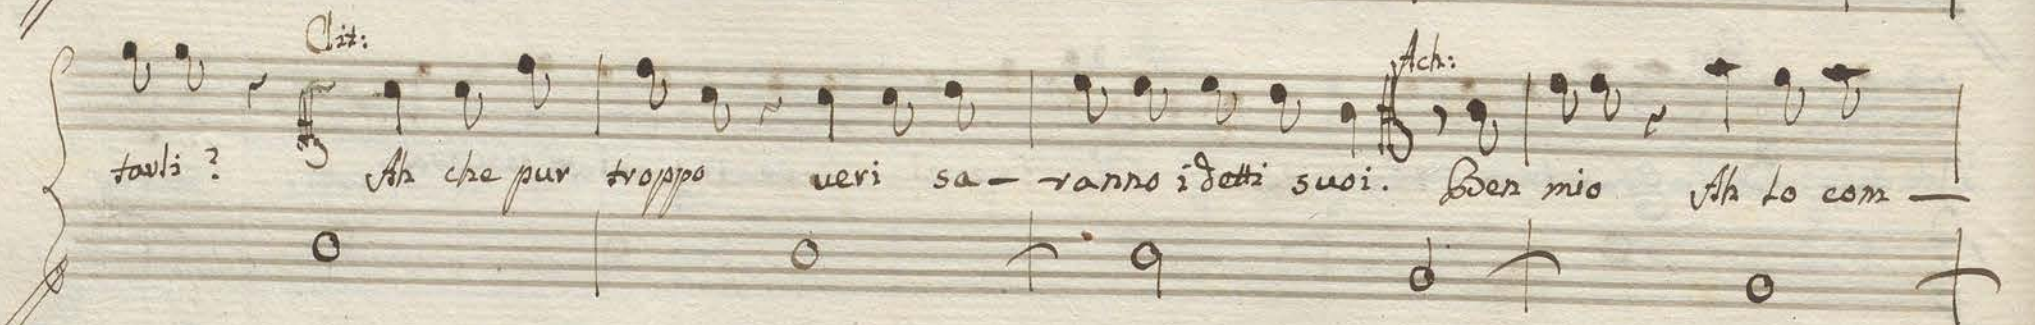 Cit: Ach:
tarli? Ah che pur troppo veri sa-ranno i detti suoi. Ben mio Ah lo com-